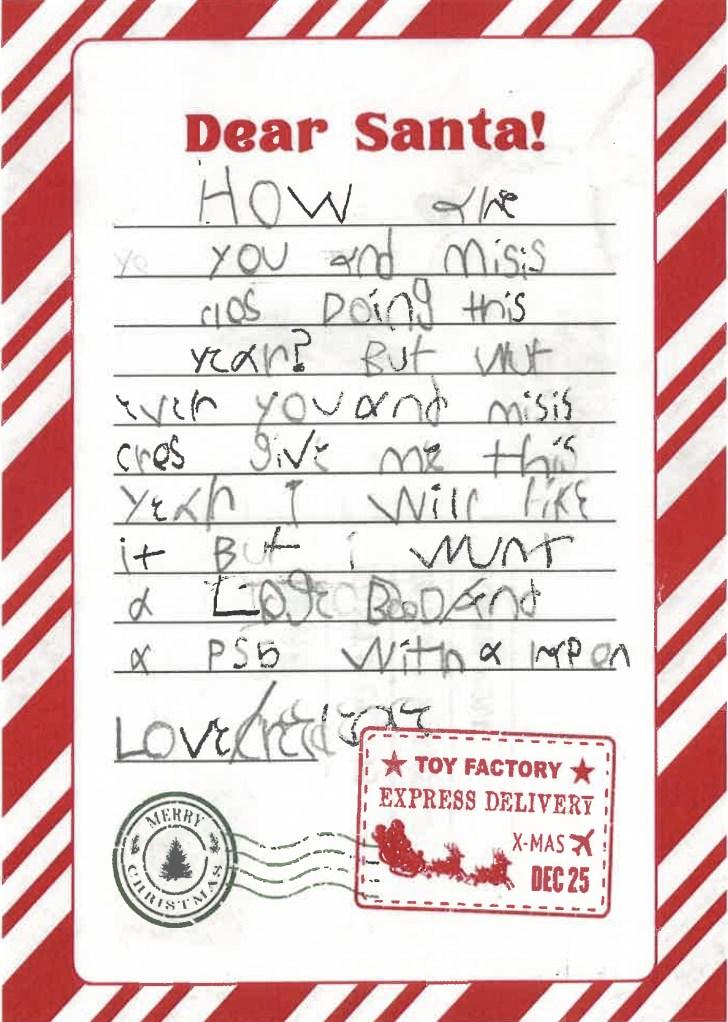 Dear Santa!
HOW are
you and misis
clos Doing this
year? But wut
ever you and misis
cros give me this
year I will like
it But i wunt
a and
a PS5 with a
Love
★ TOY FACTORY ★
EXPRESS DELIVERY
X-MAS
DEC 25
MERRY
CHRISTMAS